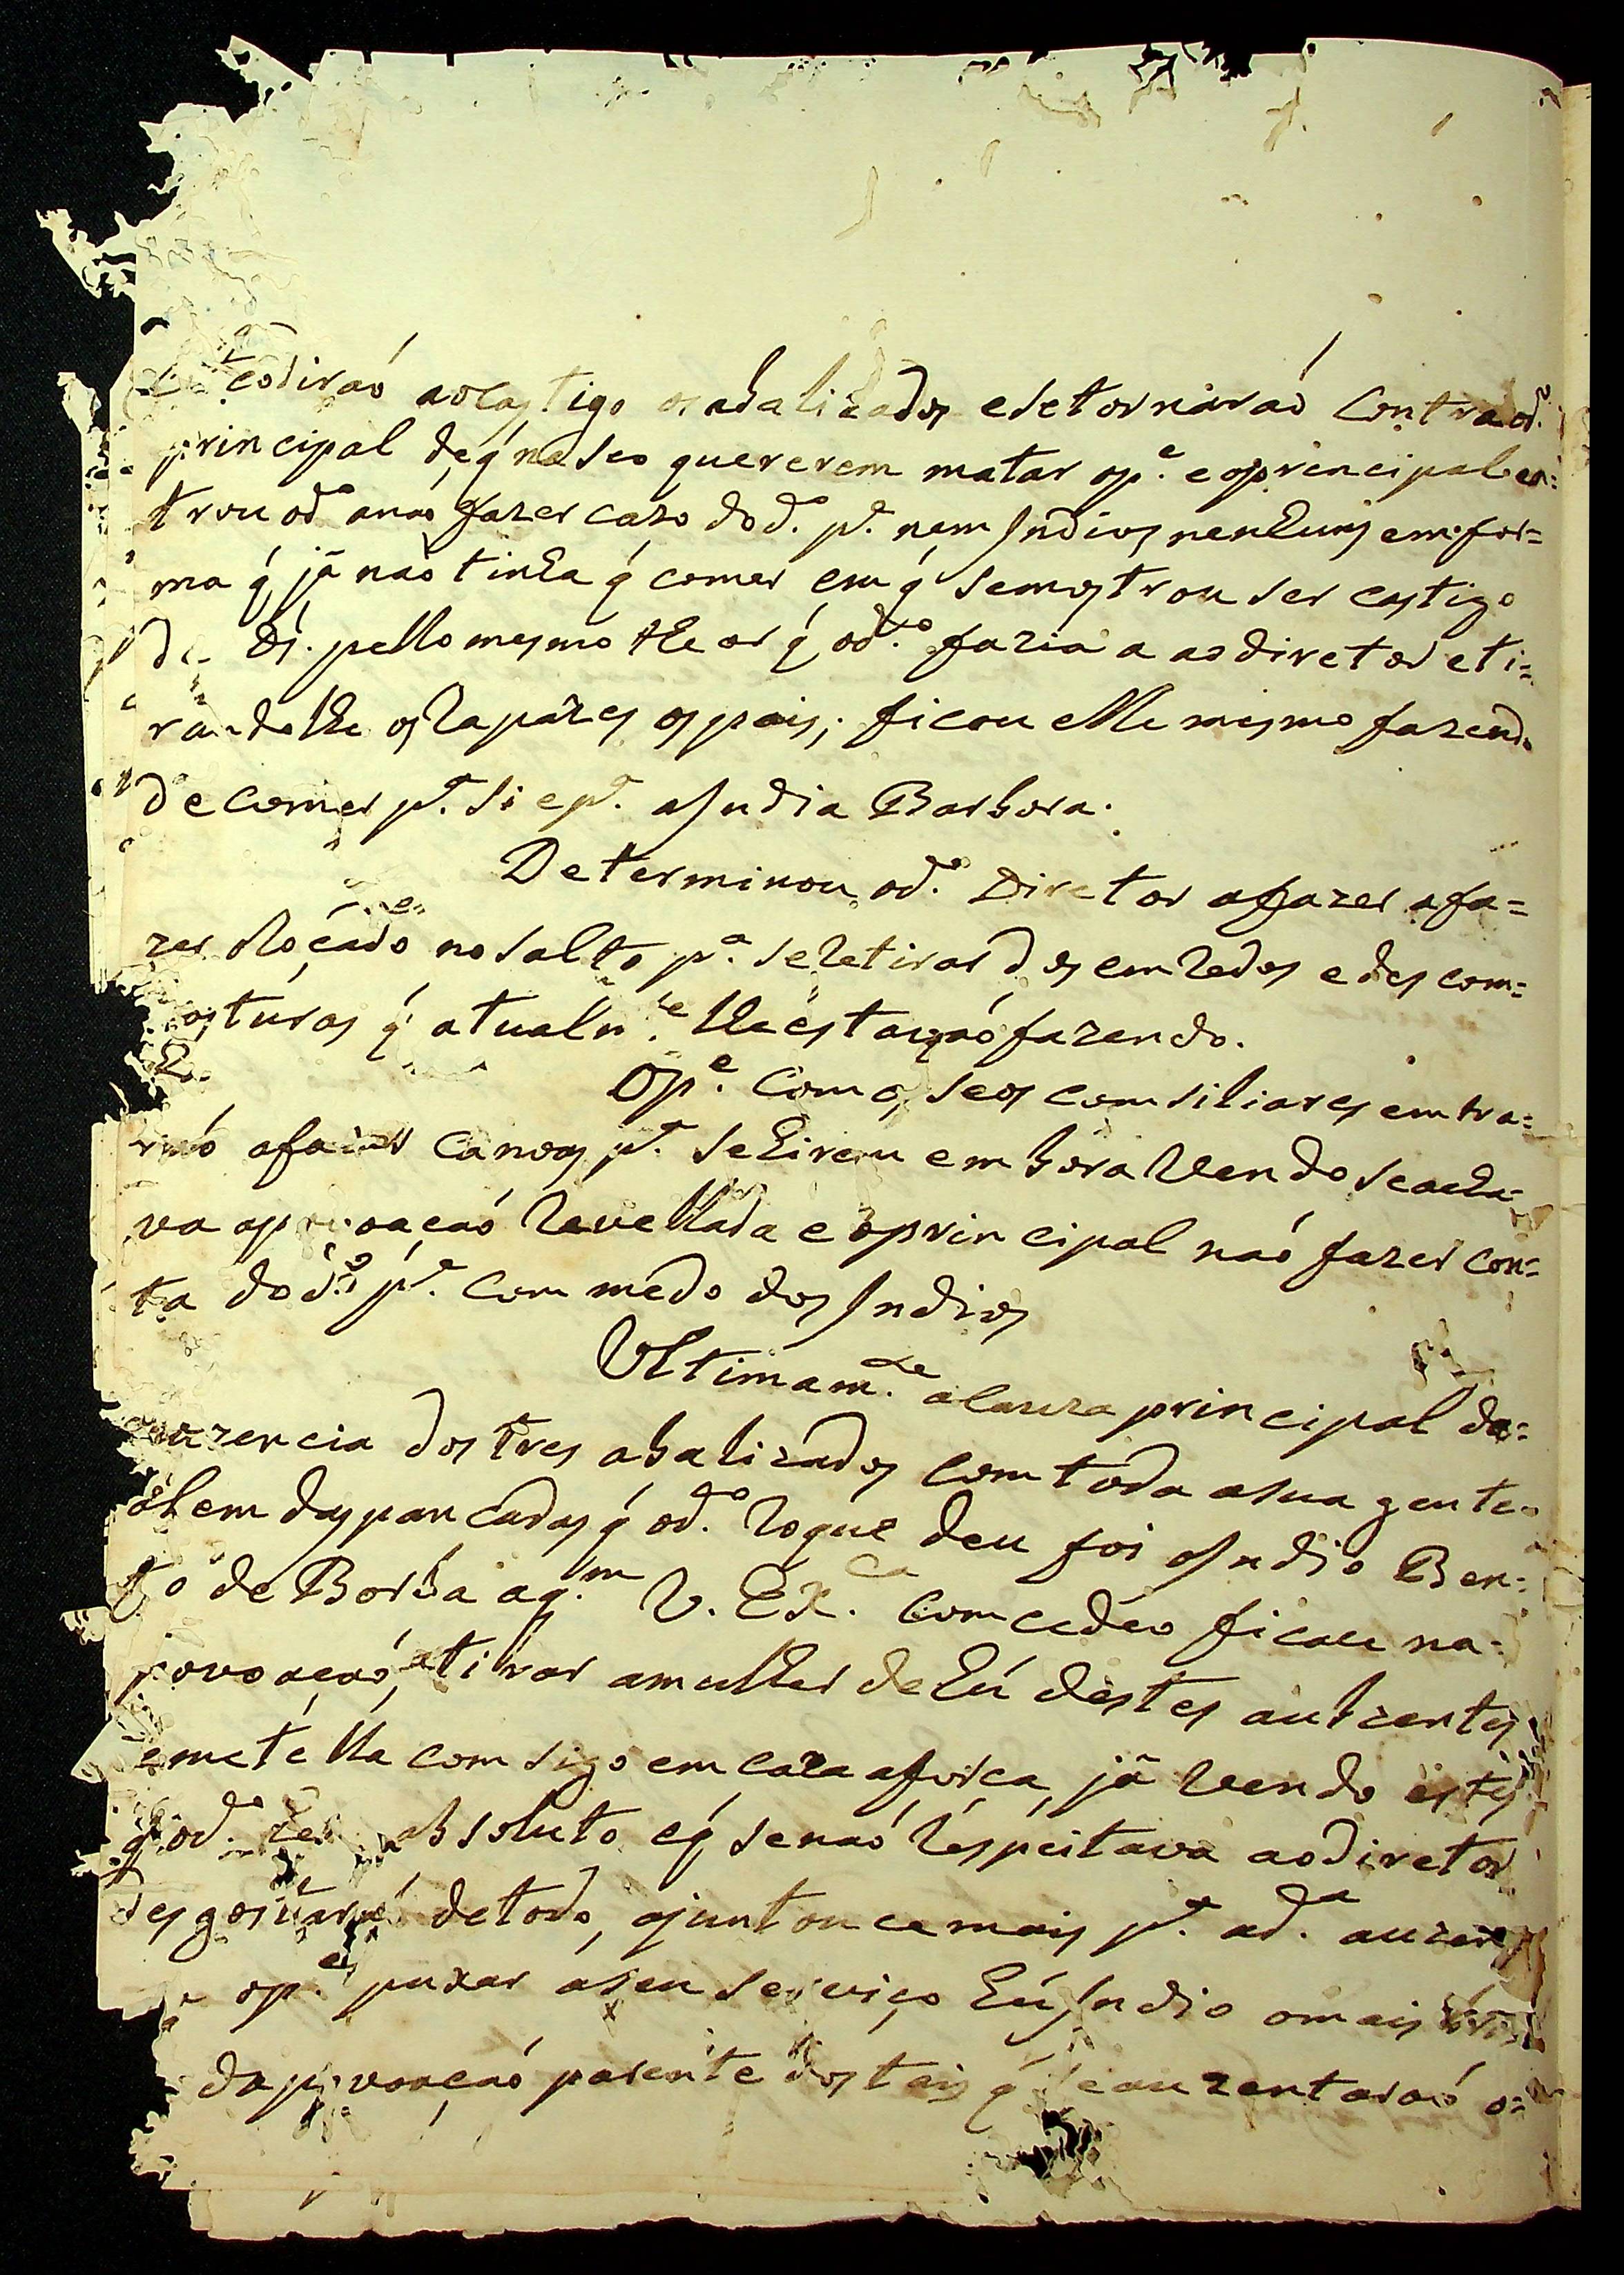 codiraó aocastigo os abalizados e setornaraó Contra o d.º
principal de q̃ naseo quererem matar o p.e e o principal en=
trou o d.º a naó fazer cazo do d.º p.e nem Indios nenhuns em for=
ma q̃ já naó tinha q̃ comer em q̃ semostrou ser castigo
de Ds. pello mesmo theor q̃ o d.º fazia a ao diretor e ti=
randolhe os Rapazes os pais; ficou elle mesmo fazendo
de comer p.a si e p.a a India Barbora.
Determinou o d.º Diretor a fazer a fa=
zer Roçado no salto p.a se Retirar dos emRedos e des com=
posturas q̃ atualm.te lhe estavaó fazendo.
O p.e Com os seos comsiliares emtra=
raó a fazer Canoas p.a sehirem embora Vendo seacha=
va a povoaçaó Revellada e o principal naó fazer con=
ta do d.º p.e Com medo dos Indios
Ultimam.te a Cauza principal da=
auzencia dos tres abalizados Com toda a sua gente
alem das pancadas q̃ o d.º Roque deu foi o Indio Ben=
to de Borba a q.m V. Ex.ca Comcedeo ficace na=
povoaçaó, tirar a mulher de hú destes auzentes
e metella comsigo em Caza a força, já Vendo estes
q̃ o d.º absoluto e q̃ senaó Respeitava ao diretor
desgostaraó de todo, ajuntouce mais p.a a d.a auzen
o p.e puxar a seu serviço hú Indio o mais
da povoaçaó parente dos tais q̃ seauzentaraó o=